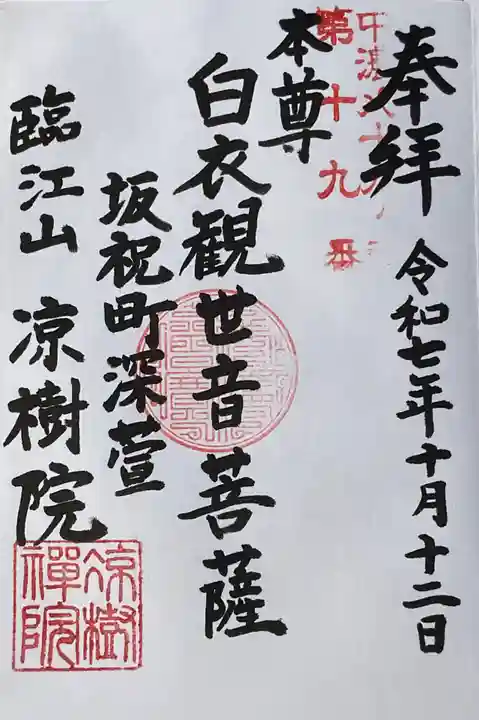 奉拝
令和七年十月十二日
第十九番
本尊
白衣観世音菩薩
坂祝町深萱
臨江山 凉樹院
凉樹
禅院